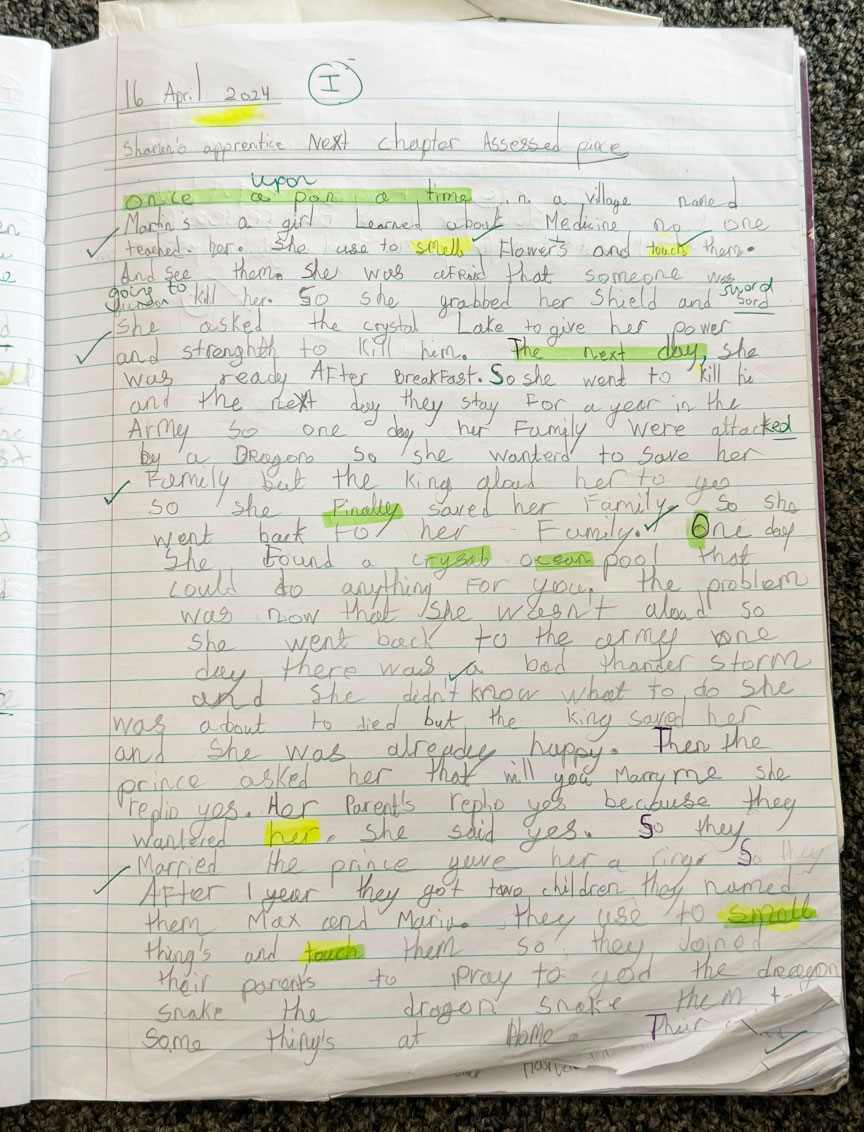 16 April 2024 I
Next chapter Assessed piece
upon
once a pon a time in a village named
Martin's a girl Learned about Medicine no one
teached her. She use to smell Flower's and touch them.
And see them. she was afraid that someone was
going to sword
kill her. So she grabbed her Shield and sord
She asked the crystal Lake to give her power
and strenghth to kill him. The next day, she
was ready AFter BreakFast. So she went to kill
and the next day they stay For a year in the
Army so one day her Family were attacked
by a Dragon so she wanterd to save her
Family but the king aload her to
so she Finally saved her Family. So she
went back to her Family. One day
She Found a ocean pool that
could do anything For you, the problem
was now that she wasn't aload so
she went back to the army one
day there was a bad thander storm
and she didn't know what to do she
was about to died but the king saved her
and she was already happy. Then the
prince asked her that will you Marry me she
replio yes. Her Parent's replio yes because they
wantered her. she said yes. So they
Married the prince gave her a ring. So they
AFter 1 year they got two children they named
them Max and Maria. they use to smell
thing's and touch them so they Joined
their parent's to pray to god the dragon
snake the dragon snake them
some thing's at Home.